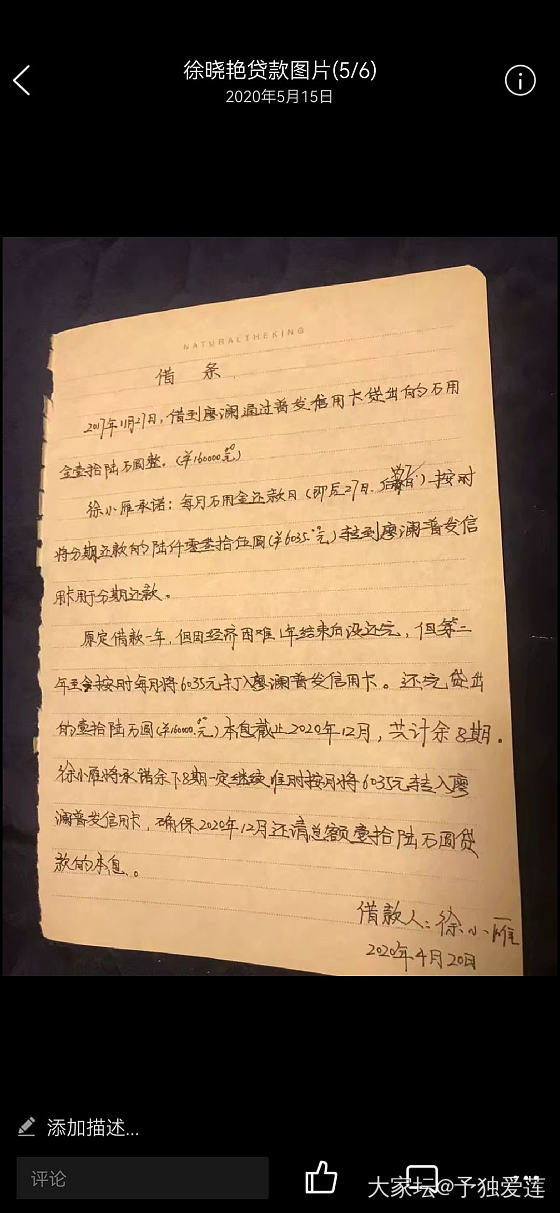 徐晓艳贷款图片(5/6)
2020年5月15日
NATURALTHEKING
借 条
2017年11月27日,借到廖澜通过普发信用卡贷出的万用
金壹拾陆万圆整。(¥160000.00元)
徐小雁承诺:每月万用金还款日(即后27日.) 按时
将分期还款的陆仟零叁拾伍圆(¥6035.00元)转到廖澜普发信
用卡用于分期还款。
原定借款一年,但因经济困难1年结束后没还完,但第二
年至今按时每月将6035元打入廖澜普发信用卡。还完贷出
的壹拾陆万圆(¥160000.00元)本息截止2020年12月,共计余8期.
徐小雁将承诺余下8期一定继续准时按月将6035元转入廖
澜普发信用卡,确保2020年12月还清总额壹拾陆万圆贷
款的本息。
借款人:徐小雁
2020年4月20日
添加描述...
评论
大家坛@予独爱莲